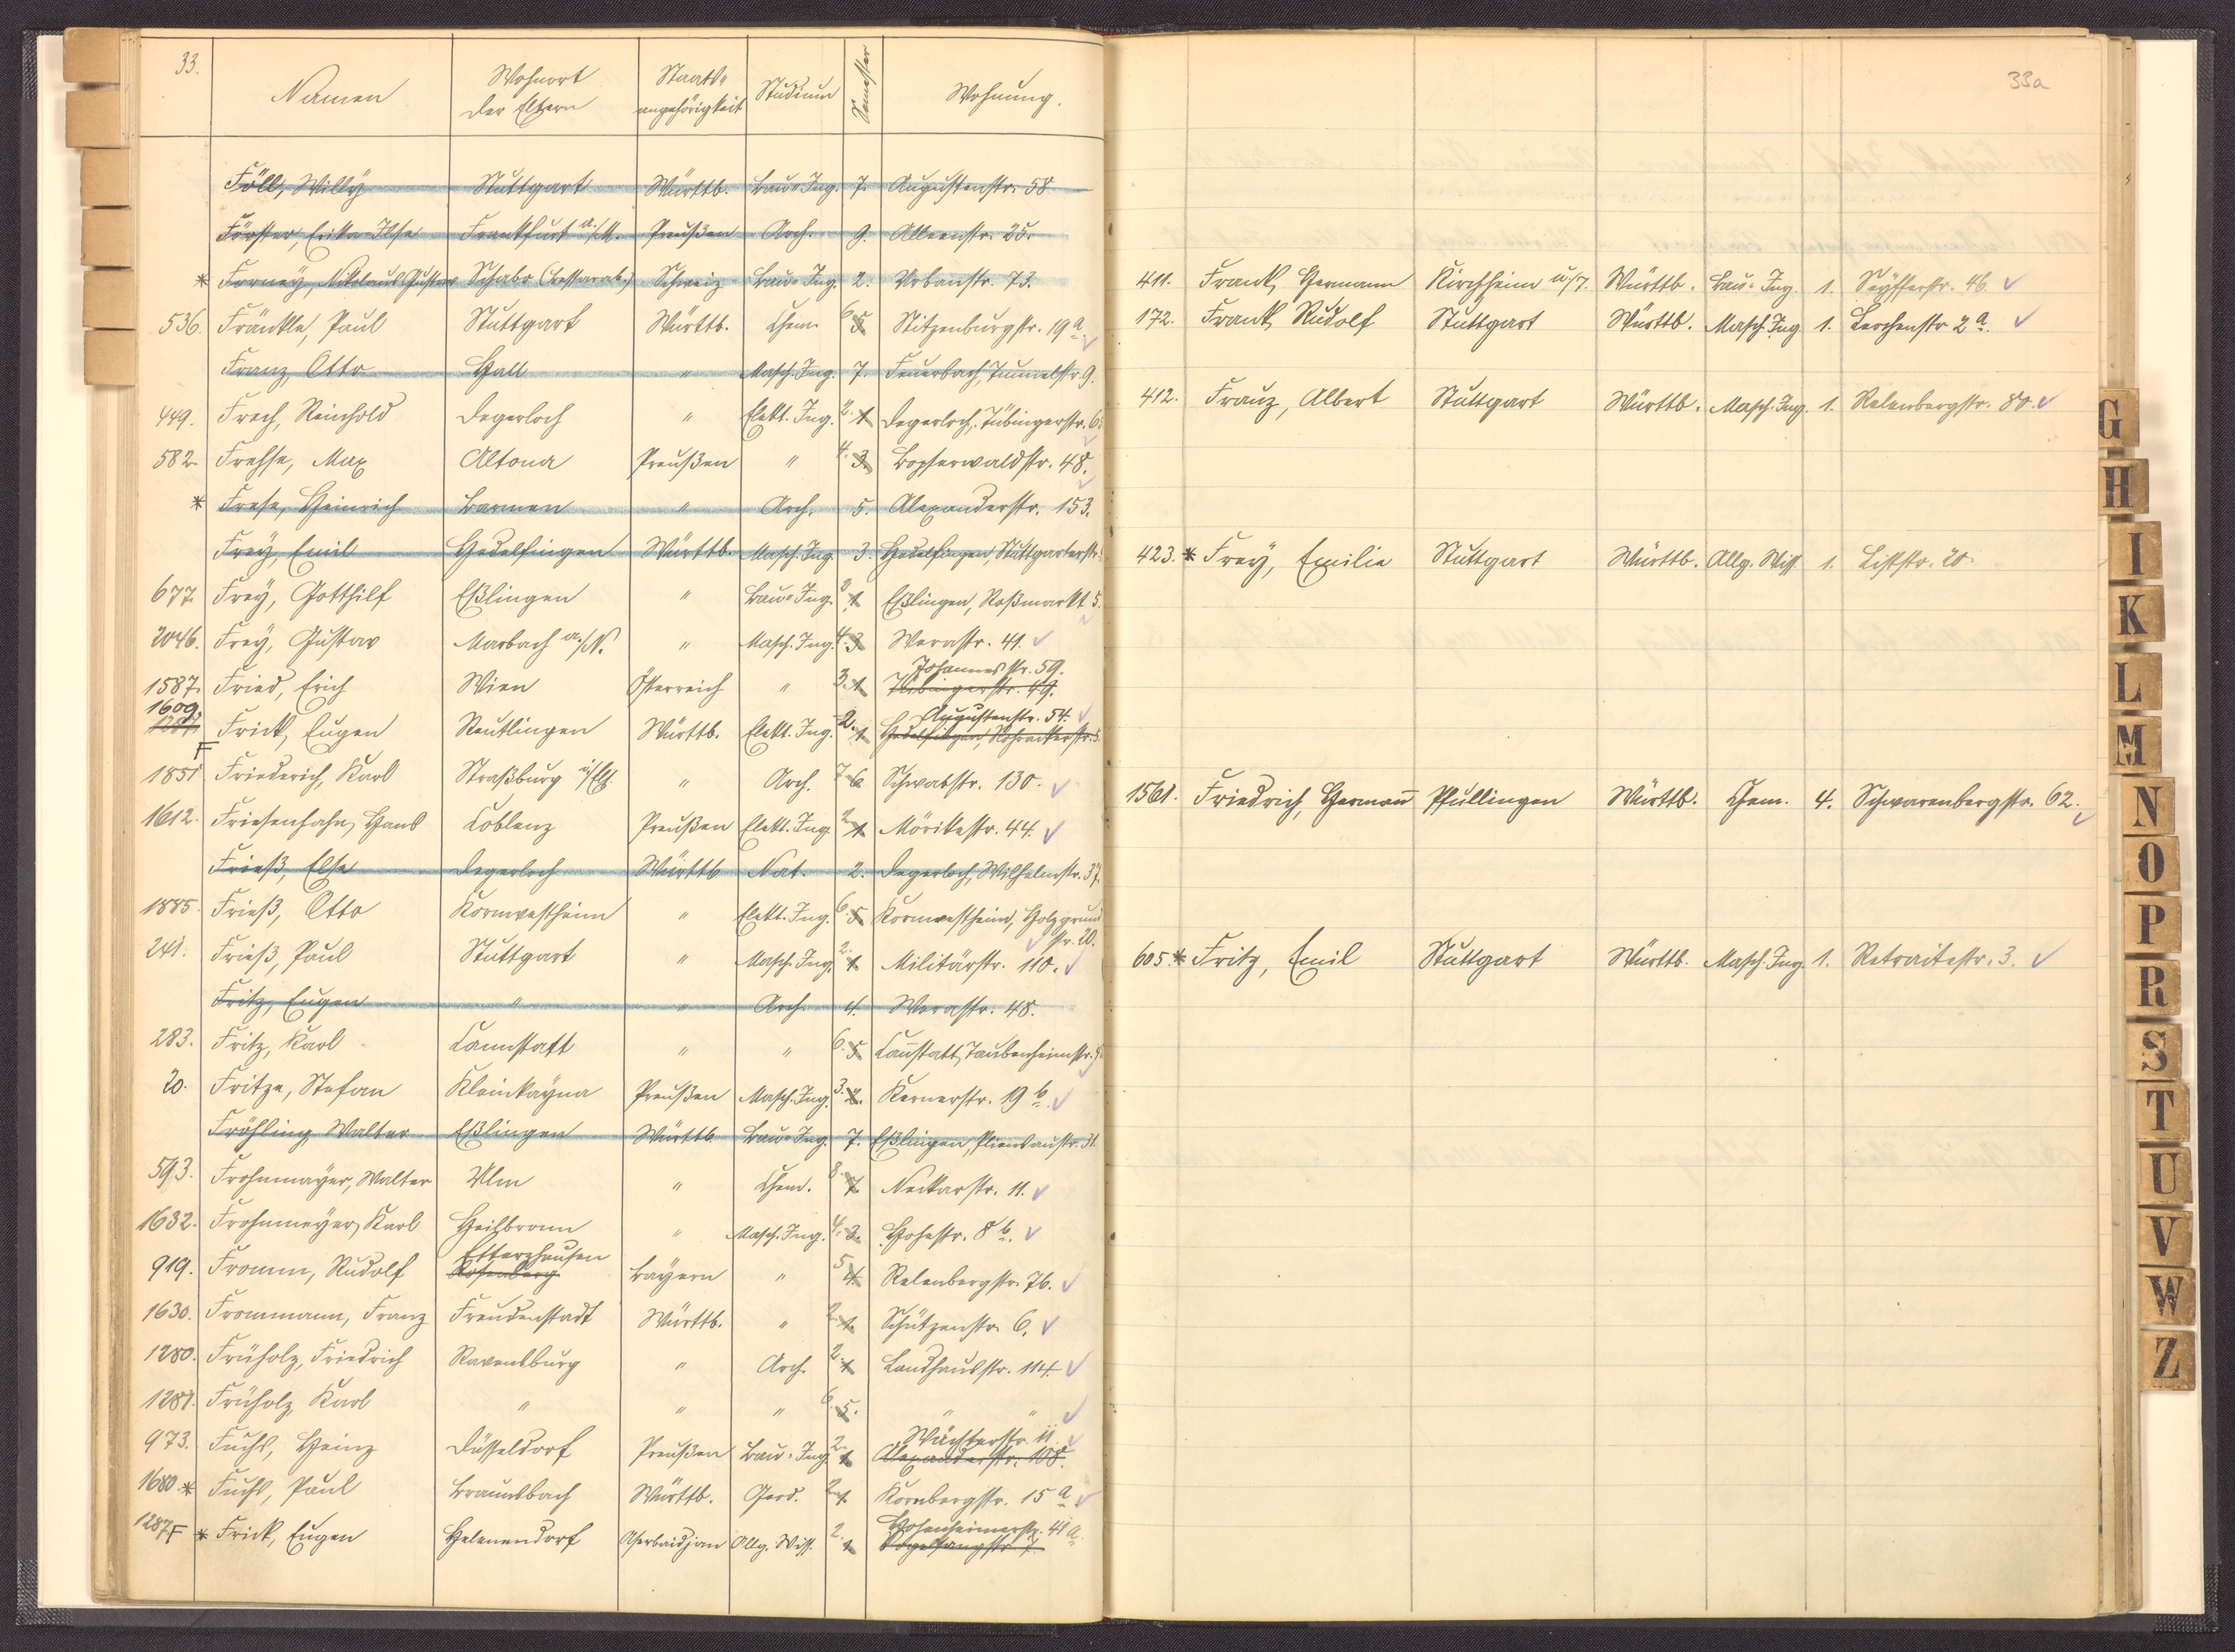 33.
Namen Wohnort der Eltern Staats- angehörigkeit Studium Semester Wohnung.
Föll, Willy Stuttgart Württb. Bau-Ing. 7. Augustenstr. 58
Förster, Erika-Ilse Frankfurt a./M. Preußen Arch. 9. Alleenstr. 25.
* Forney, Nikolaus Gustav Schabo (Bessarab.) Schweiz Bau-Ing. 2. Urbanstr. 73.
536. Fränkle, Paul Stuttgart Württb. Chem. 6. 5. Stitzenburgstr. 19 a.
Franz, Otto Hall " Masch. Ing. 7. Feuerbach, Tunnelstr. 9.
449. Frech, Reinhold Degerloch " Elekt. Ing. 2. 1. Degerloch, Tübingerstr. 6.
582. Frehse, Max Altona Preußen " 4. 3. Bopserwaldstr. 48.
* Frese, Heinrich Barmen " Arch. 5. Alexanderstr. 153.
Frey, Emil Hedelfingen Württb. Masch. Ing. 3. Hedelfingen, Stuttgarterstr.
677. Frey, Gotthilf Eßlingen " Bau-Ing. 2. 1. Eßlingen, Roßmarkt 5.
2046. Frey, Gustav Marbach a./N. " Masch. Ing. 4. 3. Werastr. 41.
Johannesstr. 59.
1587. Fried, Erich Wien Österreich " 3. 1. Tübingerstr. 49.
1609. Augustenstr. 54.
1287. Frick, Eugen Reutlingen Württb. Elekt. Ing. 2. 1. Hedelfingen, Rohrackerstr. 5.
F
1851 Friederich, Karl Straßburg i/Els. " Arch. 7. 6. Schwabstr. 130.
1612. Friesenhahn, Hans Coblenz Preußen Elekt. Ing. 2. 1. Mörikestr. 44.
Frieß, Else Degerloch Württb Nat. 2. Degerloch, Wilhelmstr. 37.
1885. Frieß, Otto Kornwestheim " Elekt. Ing. 6. 5. Kornwestheim, Holzgrund
str. 20.
241. Frieß, Paul Stuttgart " Masch. Ing. 2. 1. Militärstr. 110.
Fritz, Eugen " " Arch. 4. Werastr. 48.
283. Fritz, Karl Cannstatt " " 6. 5. Can̄statt, Taubenheimstr.
20. Fritze, Stefan Kleinkayna Preußen Masch. Ing. 3. 2. Kernerstr. 19 b.
Fröhling Walter Eßlingen Württb Bau-Ing. 7. Eßlingen, Pliensaustr. 31.
593. Frohnmayer, Walter Ulm " Chem. 8. 7. Neckarstr. 11.
1632. Frohnmeyer, Karl Heilbronn " Masch. Ing. 4. 3. Hohestr. 8 b.
Etterzhausen
919. Fromm, Rudolf Rosenberg Bayern " 5. 4. Relenbergstr. 76.
1630. Frommann, Franz Freudenstadt Württb. " 2. 1. Schützenstr. 6.
1280. Früholz, Friedrich Ravensburg " Arch. 2. 1. Landhausstr. 114
1281. Früholz, Karl " " " 6. 5. " "
Wächterstr. 11.
973. Fuchs, Heinz Düsseldorf Preußen Bau-Ing. 2. 1. Alexanderstr. 108.
1680. * Fuchs, Paul Braunsbach Württb. Geod. 2. 1. Kornbergstr. 15 a
Hohenheimerstr. 41 a.
1287 F * Frick, Eugen Helenendorf Aserbaidjan Allg. Wiss. 2. 1. Vogelsangstr. 7
33a
411. Frank, Hermann Kirchheim u/T. Württb. Bau-Ing. 1. Seyfferstr. 46.
172. Frank, Rudolf Stuttgart Württb. Masch. Ing. 1. Lerchenstr 2 a.
412. Franz, Albert Stuttgart Württb. Masch. Ing. 1. Relenbergstr. 80.
423. * Frey, Emilie Stuttgart Württb. Allg. Wiss 1. Liststr. 20.
1561. Friedrich, Herman̄ Pfullingen Württb. Chem. 4. Schwarenbergstr. 62.
605. * Fritz, Emil Stuttgart Württb. Masch. Ing. 1. Retraitestr. 3.
G
H
I
K
L
M
N
O
P
R
S
T
U
V
W
Z